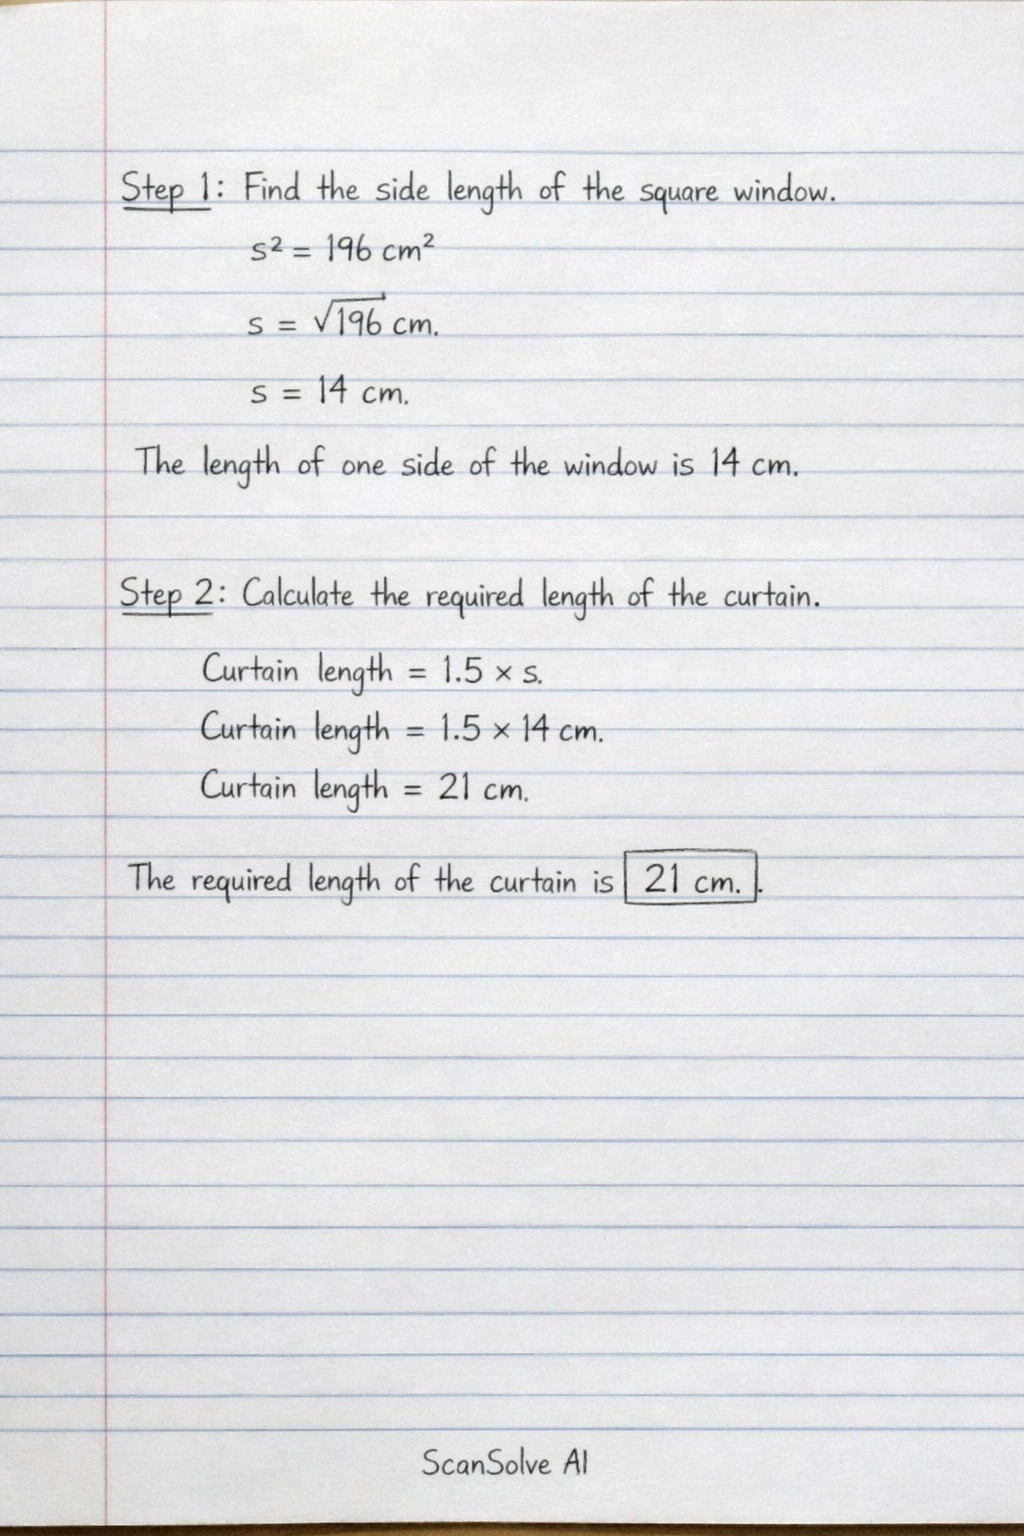 Step 1: Find the side length of the square window.
s² = 196 cm²
s = √196 cm.
s = 14 cm.
The length of one side of the window is 14 cm.
Step 2: Calculate the required length of the curtain.
Curtain length = 1.5 × s.
Curtain length = 1.5 × 14 cm.
Curtain length = 21 cm.
The required length of the curtain is 21 cm..
ScanSolve AI